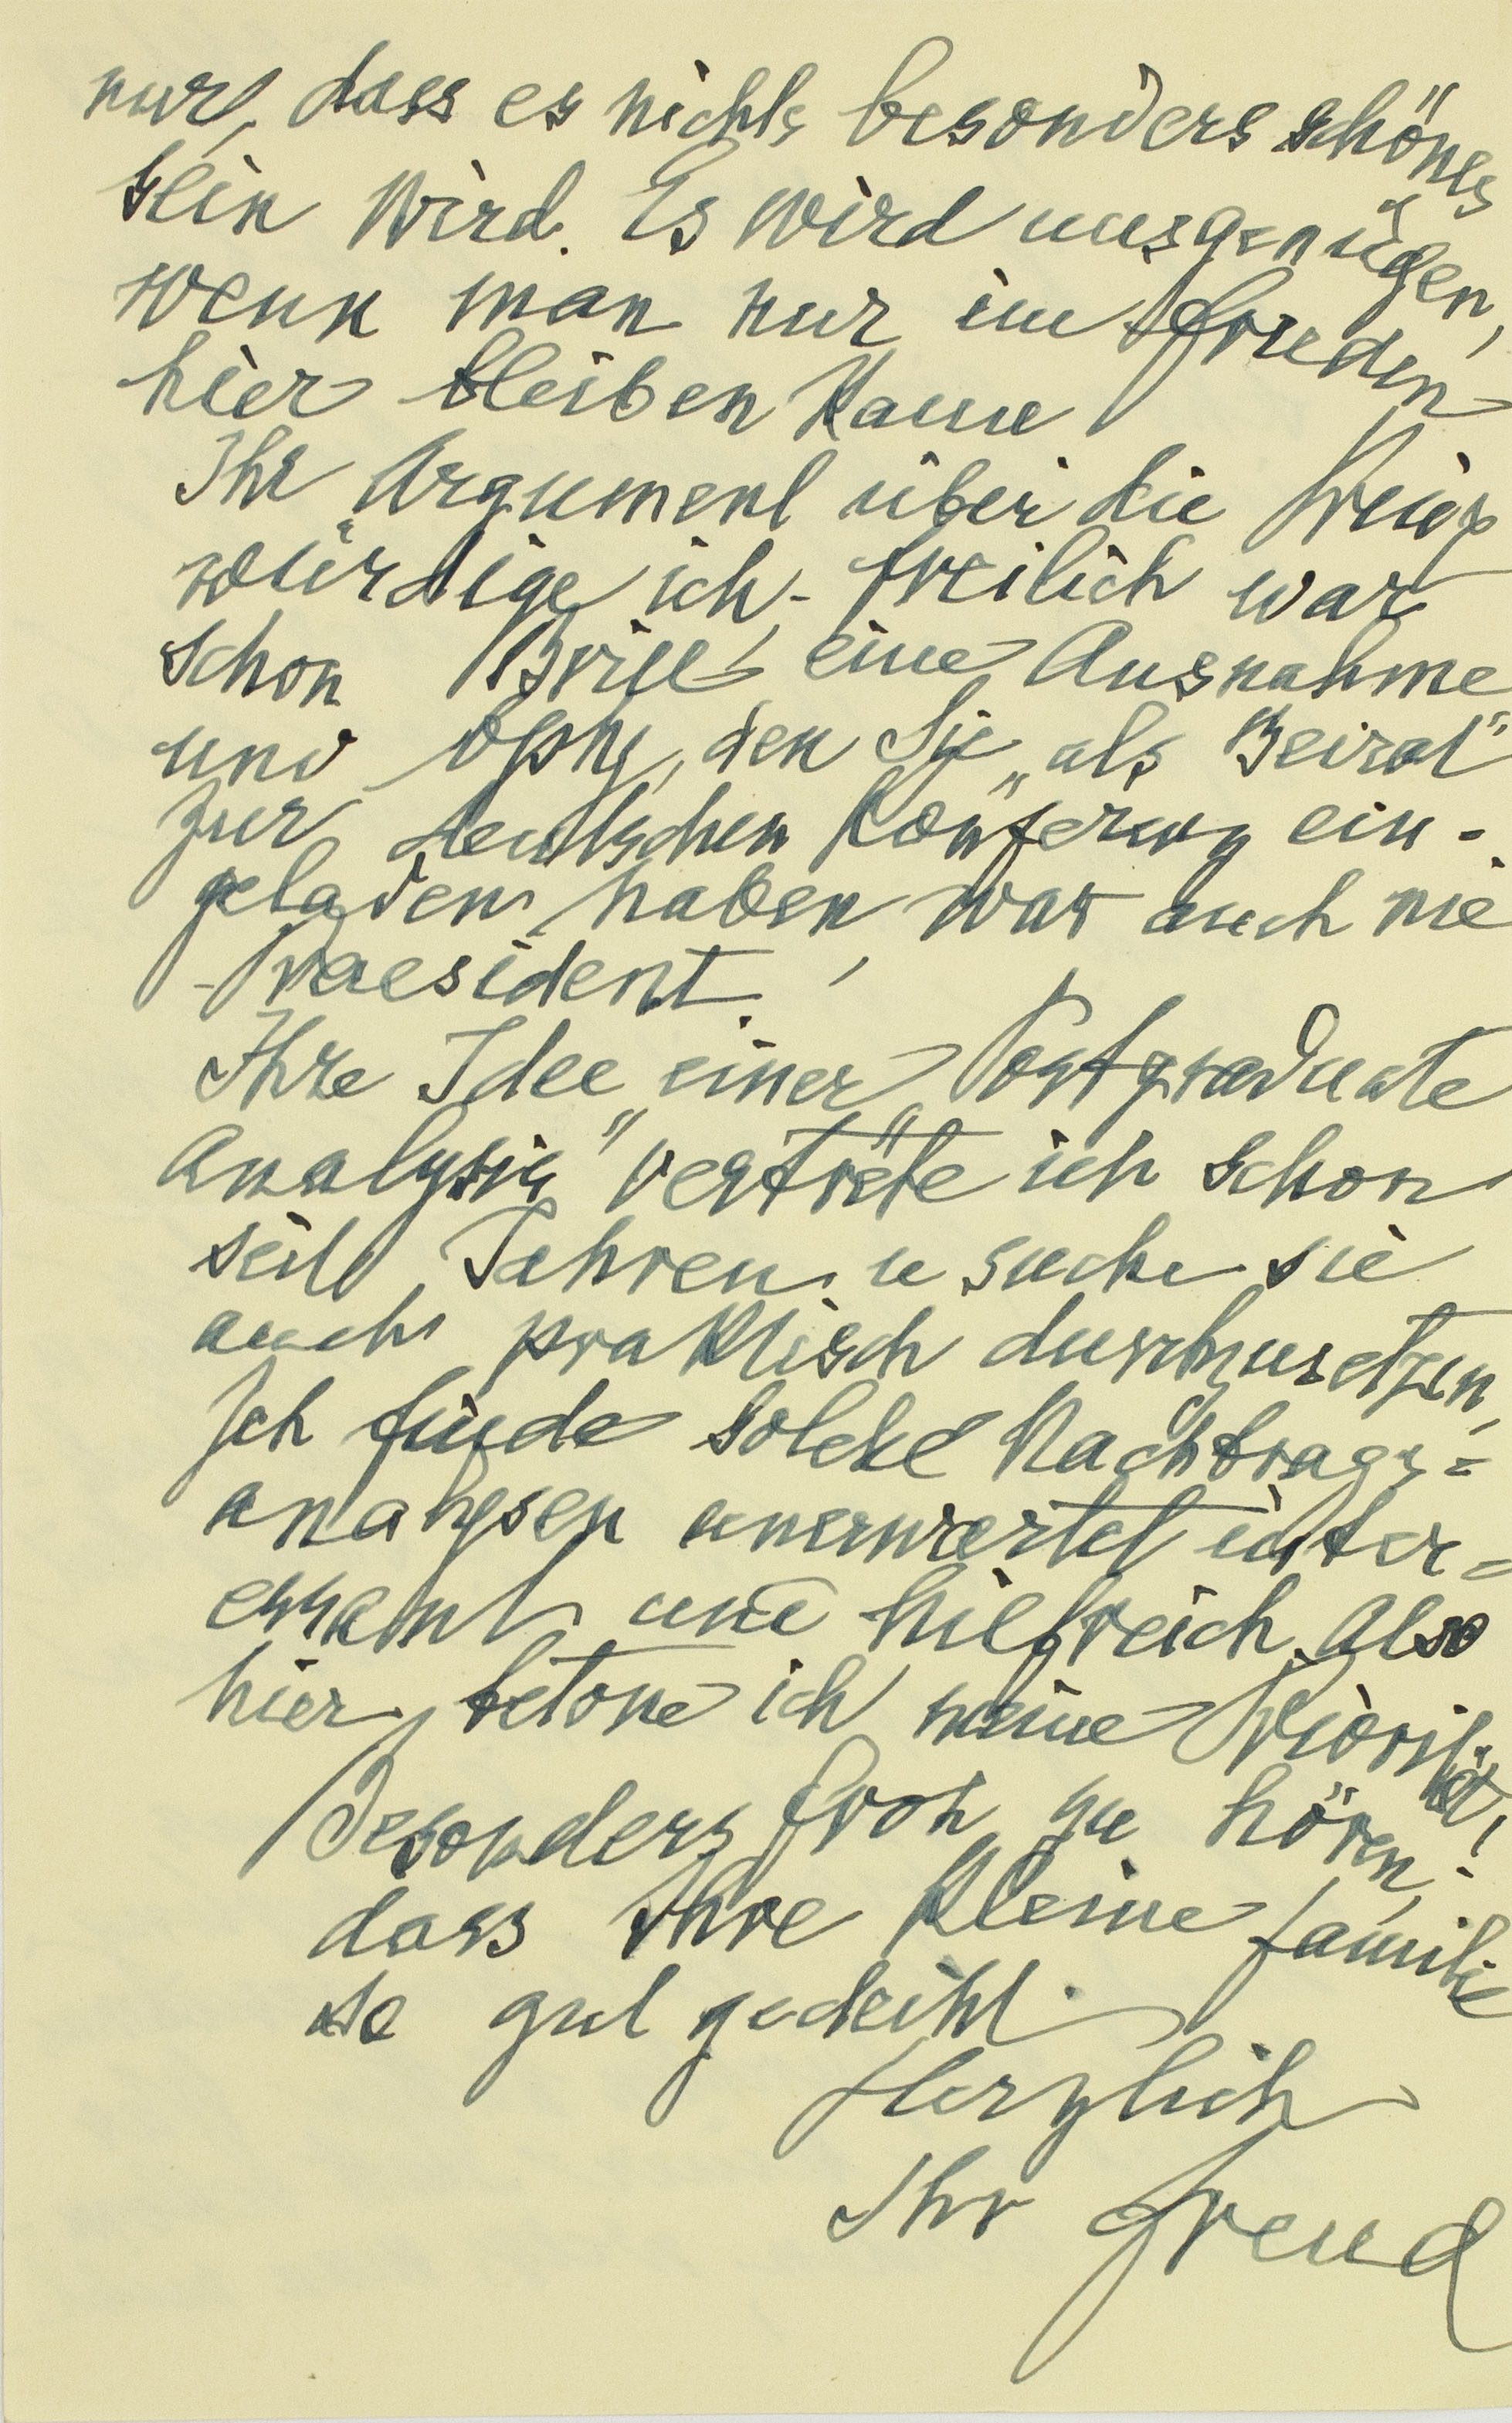 nur, dass es nichts besonders schönes
sein wird. Es wird uns genügen,
wenn man nur im Frieden
hier bleiben kann
Ihr Argument über die
würdige ich - freilich war
schon Brill eine Ausnahme
und Oph, den Sie „als Beirat"
zur deutschen Konferenz ein=
geladen haben, war auch nie
Praesident.
Ihre Idee einer „Postgraduate
Analysis" vertrete ich schon
seit Jahren u suche sie
auch praktisch durchzusetzen,
Ich finde solche Nachtrags=
analysen unerwartet inter=
essant und hilfreich. Also
hier betone ich meine Priorität!
Besonders froh zu hören,
dass Ihre kleine Familie
so gut gedeiht.
Herzlich
Ihr Freud